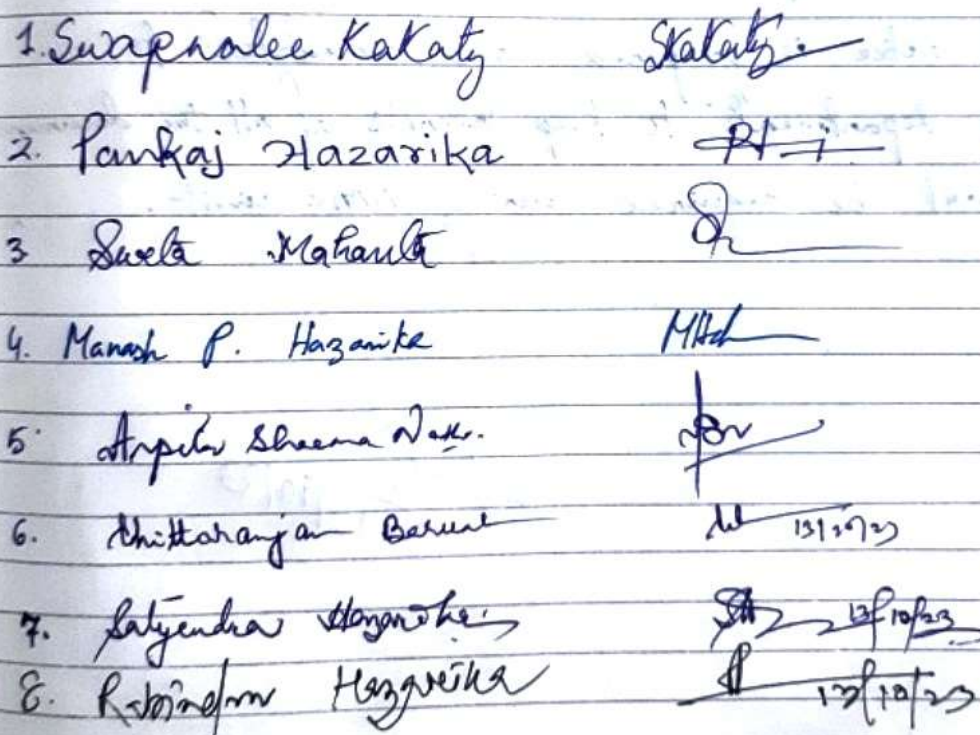 1. Swapnalee Kakaty SKakaty
2. Pankaj Hazarika PH
3 Sweta Mahanta
4. Manash P. Hazarika
5. Arpita Sharma Nath.
6. Chittaranjan Baruah 13/10/23
7. Satyendra Hazarika 13/10/23
8. Rabindra Hazarika 13/10/23